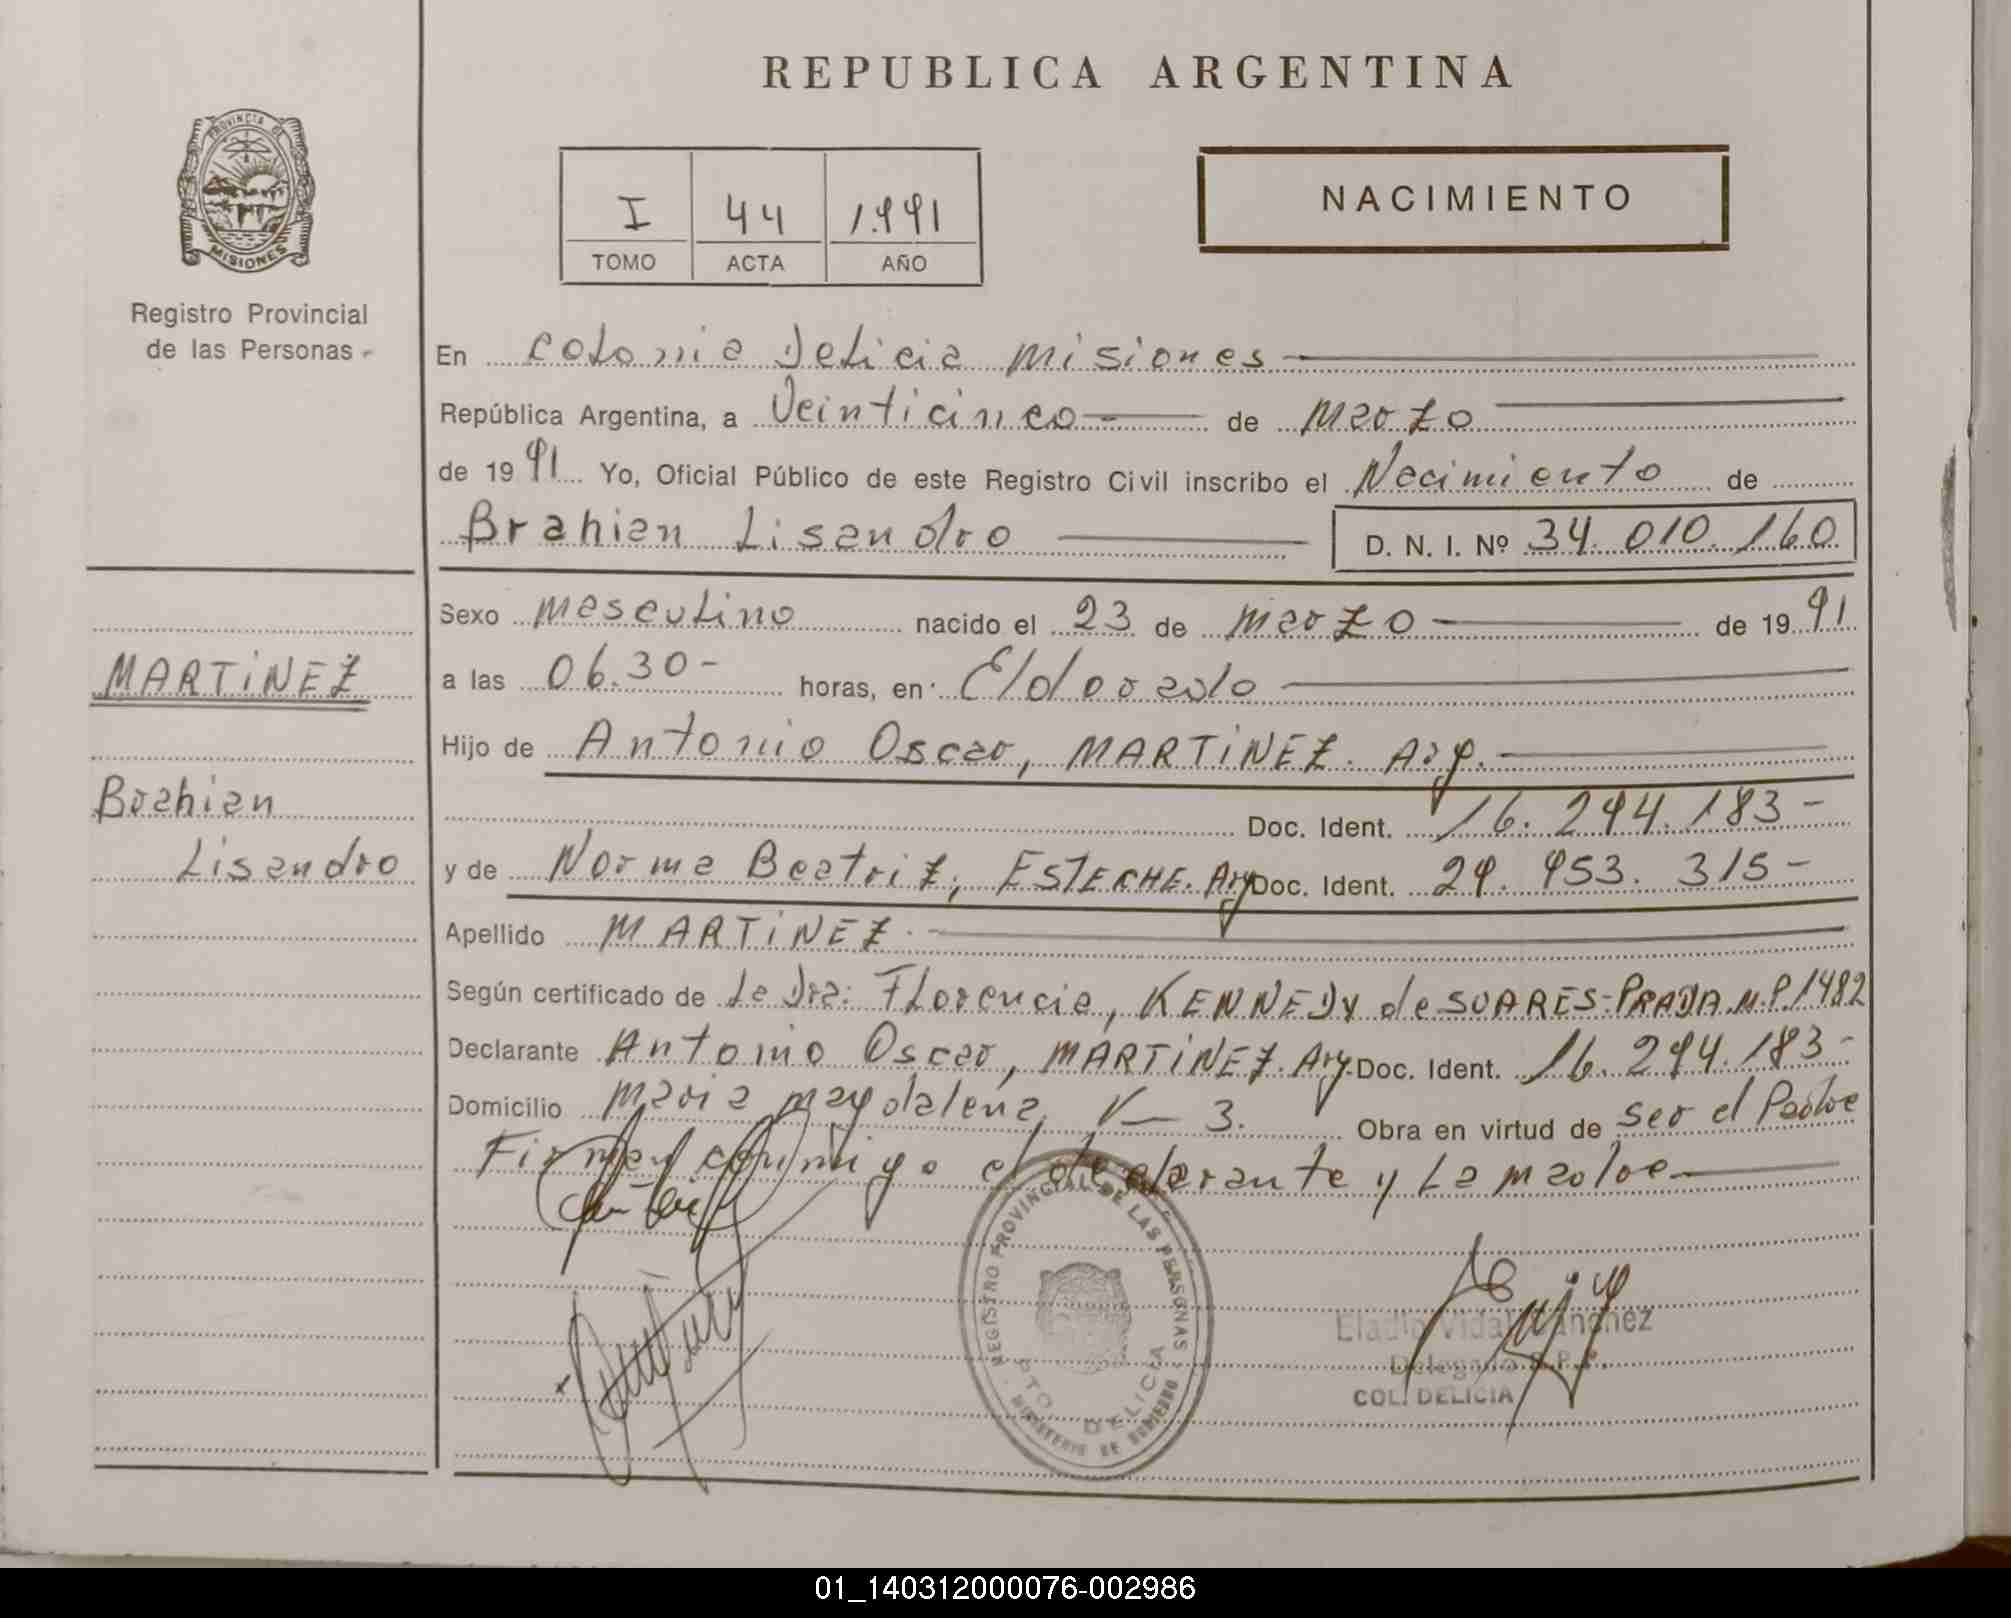 REPUBLICA ARGENTINA
PROVINCIA DE
MISIONES
Registro Provincial
de las Personas -
I 44 1.991
TOMO ACTA AÑO
NACIMIENTO
En Colonia Delicia Misiones
República Argentina, a Veinticinco de Marzo
de 1991 Yo, Oficial Público de este Registro Civil inscribo el Nacimiento de
Brahian Lisandro D. N. I. Nº 34.010.160
Sexo Masculino nacido el 23 de Marzo de 1991
MARTiNEZ
a las 06.30- horas, en Eldorado
Hijo de Antonio Oscar, MARTiNEZ. Arg.
Brahian
Doc. Ident. 16.294.183-
Lisandro
y de Norma Beatriz, ESTECHE. Arg Doc. Ident. 29.953.315-
Apellido MARTiNEZ.
Según certificado de La Dra: Florencia, KENNEDY de SUARES-PRADA.M.P.1482
Declarante Antonio Oscar, MARTiNEZ. Arg. Doc. Ident. 16.294.183-
Domicilio Maria Magdalena, 3. Obra en virtud de ser el Padre
Firman conmigo el declarante y La Madre
REGISTRO PROVINCIAL DE LAS PERSONAS
PTO DELICIA
MINISTERIO DE GOBIERNO
Eladio Vidal Sanchez
Delegado R.P.P.
COL. DELICIA
01_140312000076-002986